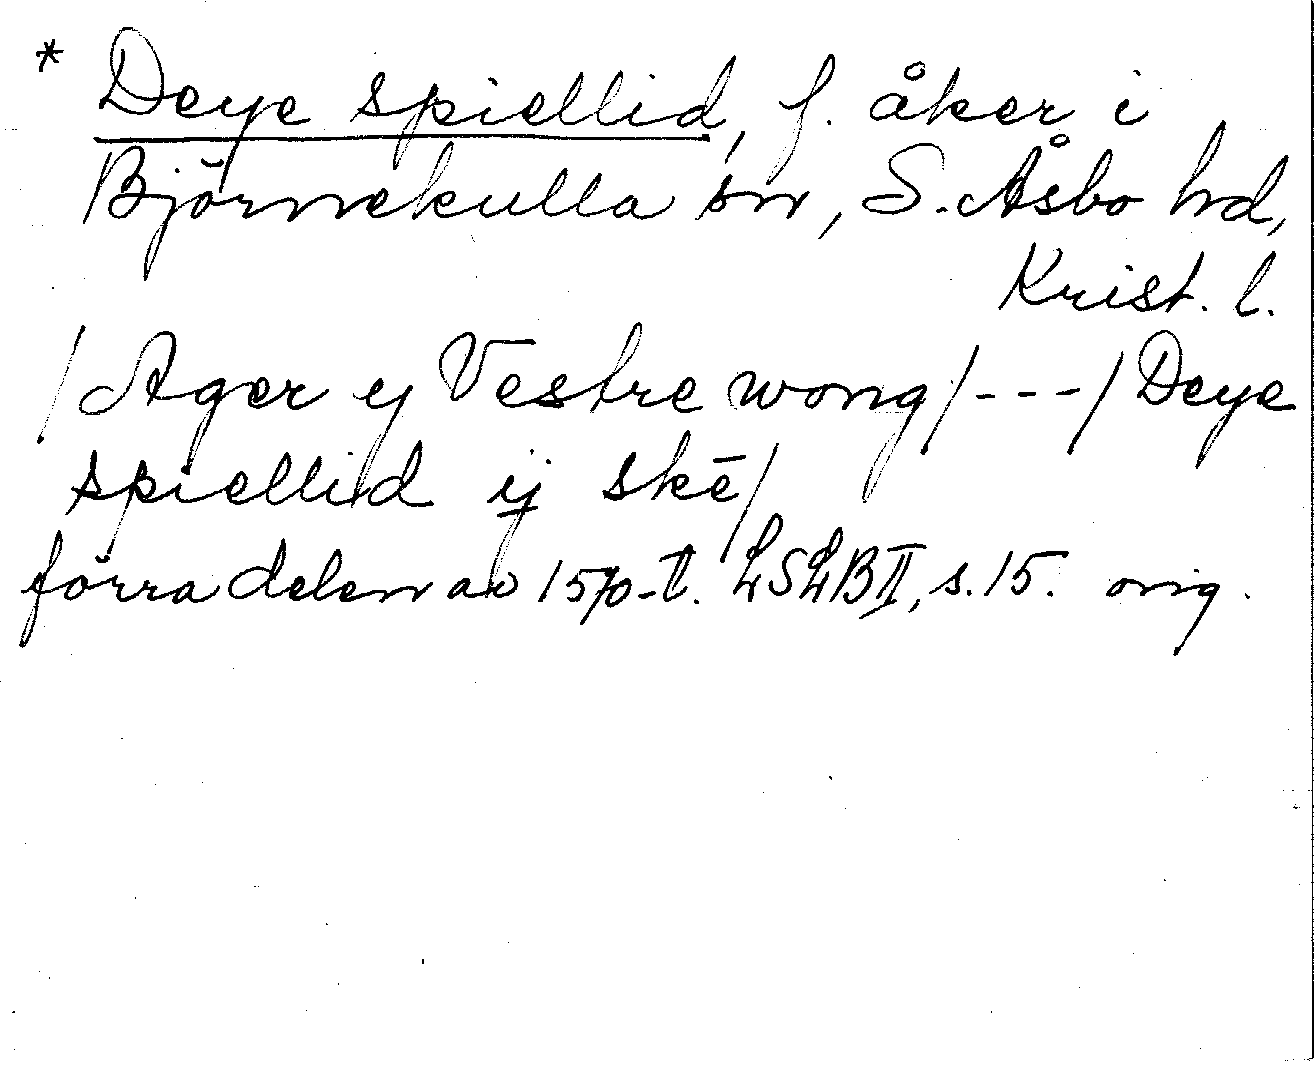 * Deye spiellid, f. åker i
Björnekulla sn, S. Åsbo hd,
Krist. l.
/Ager ij Vestre wong/---/Deye
spiellid ij skē/
förra delen av 1570-t. LSLB II, s. 15. orig.